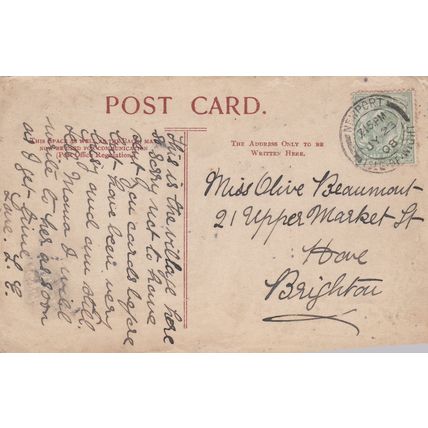 POST CARD.
THIS SPACE AS WELL AS THE BACK MAY
NOW BE USED FOR COMMUNICATION
(Post Office Regulation).
THE ADDRESS ONLY TO BE
WRITTEN HERE.
This is the village here
so sorry not to have
sent you cards before
have been very
busy and am still.
tell Mama I will
write to her as soon
as I get time
Love. L. E.
Miss Olive Beaumont
21 Upper Market St
Hove
Brighton
NEWPORT
7.15 PM
JY 23
08